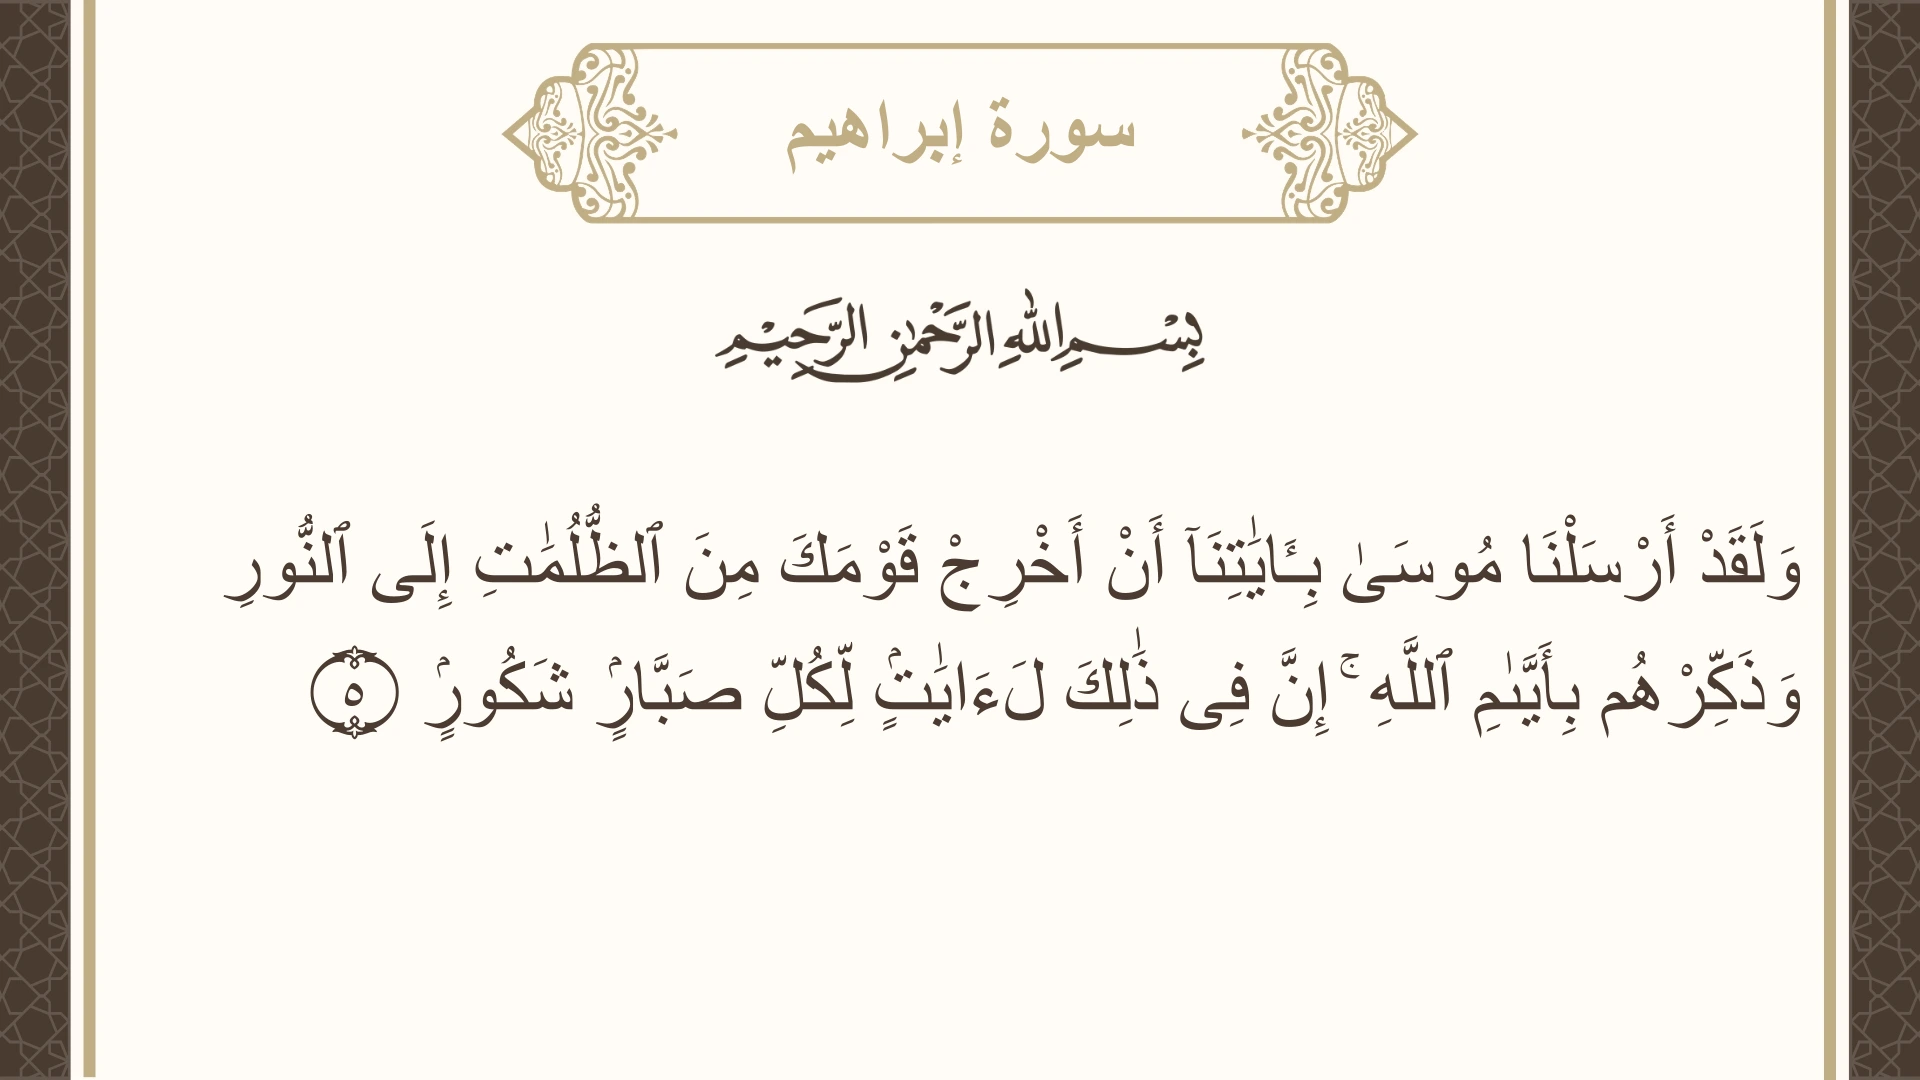 سورة إبراهيم
بِسْمِ اللهِ الرَّحْمٰنِ الرَّحِيْمِ
وَلَقَدْ أَرْسَلْنَا مُوسَىٰ بِـَٔايَـٰتِنَآ أَنْ أَخْرِجْ قَوْمَكَ مِنَ ٱلظُّلُمَـٰتِ إِلَى ٱلنُّورِ
وَذَكِّرْهُم بِأَيَّىٰمِ ٱللَّهِ ۚ إِنَّ فِى ذَٰلِكَ لَـَٔايَـٰتٍۢ لِّكُلِّ صَبَّارٍۢ شَكُورٍۢ ٥